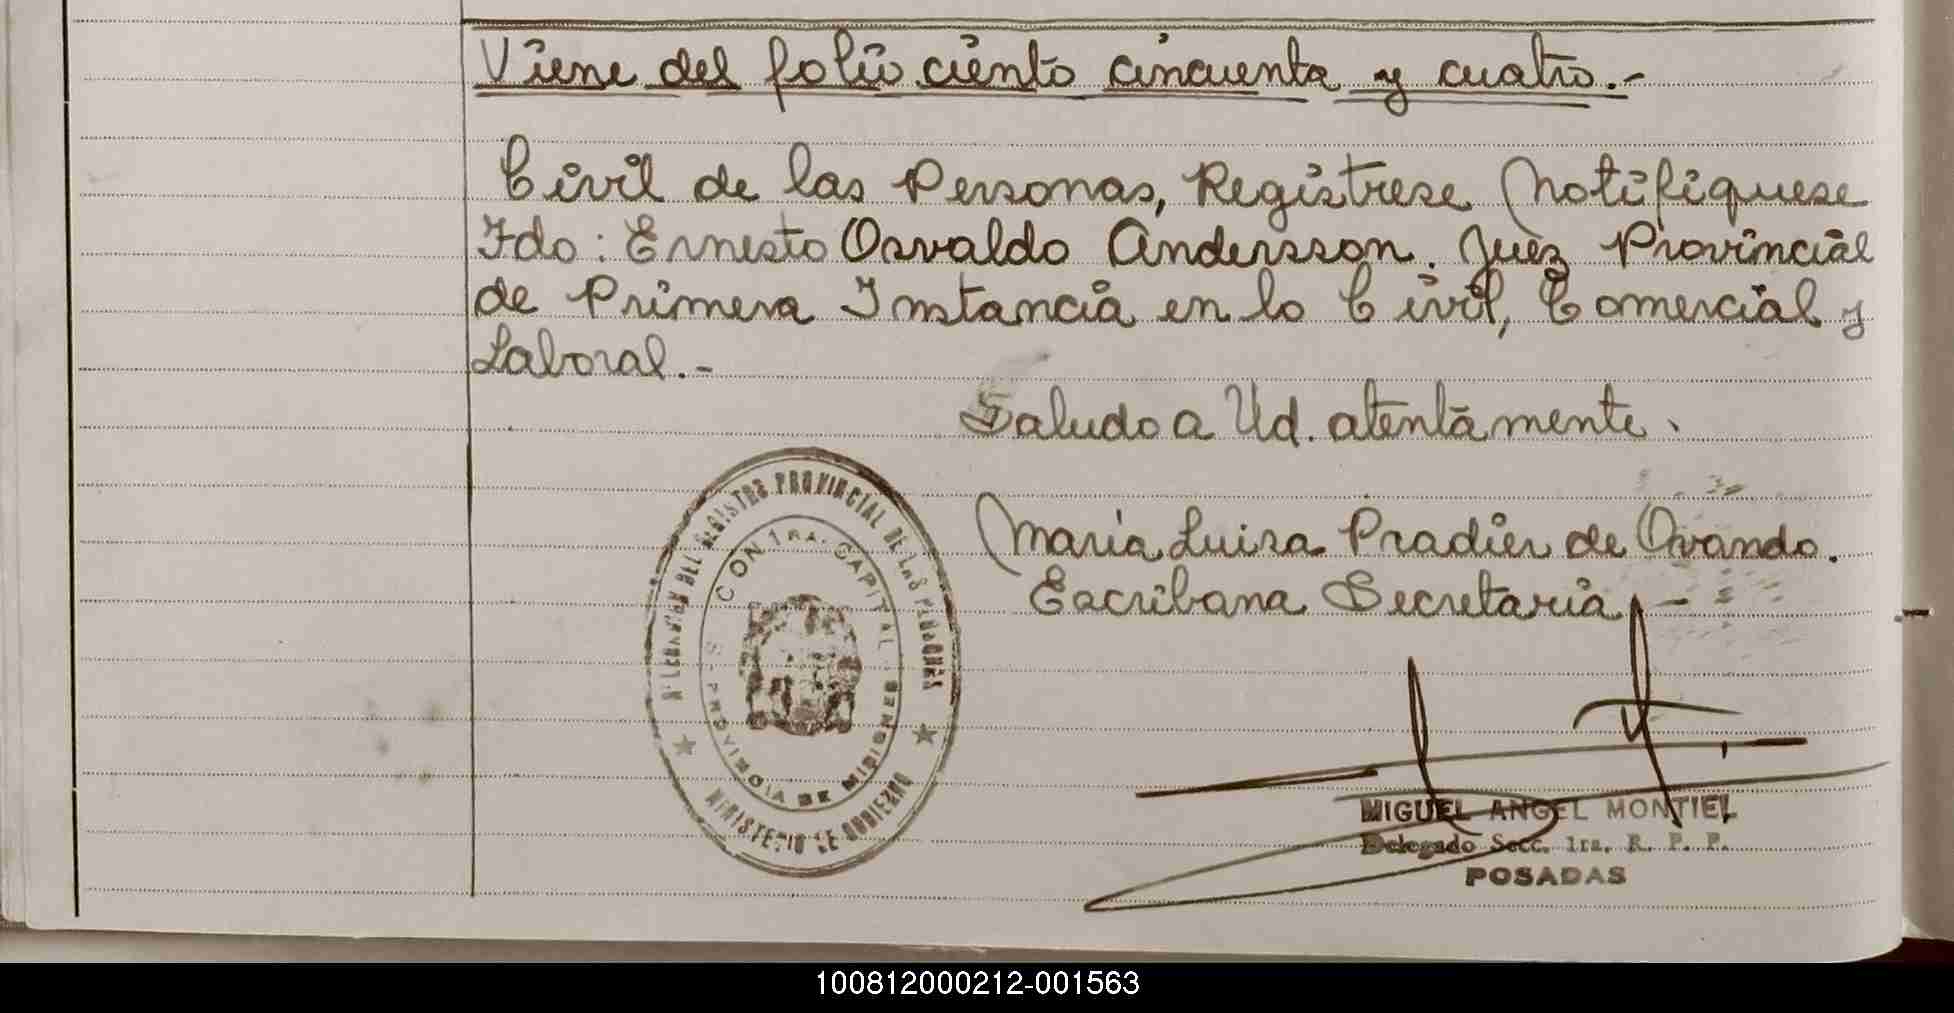 Viene del folio ciento cincuenta y cuatro.-
Civil de las Personas, Registrese Notifiquese
Fdo: Ernesto Osvaldo Andersson. Juez Provincial
de Primera Instancia en lo Civil, Comercial y
Laboral.-
Saludo a Ud. atentamente.
Maria Luisa Pradier de Ovando.
Escribana Secretaria -
DEL REGISTRO PROVINCIAL DE LAS PERSONAS
MINISTERIO DE GOBIERNO
CON 1RA. CAPITAL
PROVINCIA DE MISIONES
MIGUEL ANGEL MONTIEL
Delegado Secc. 1ra. R. P. P.
POSADAS
100812000212-001563